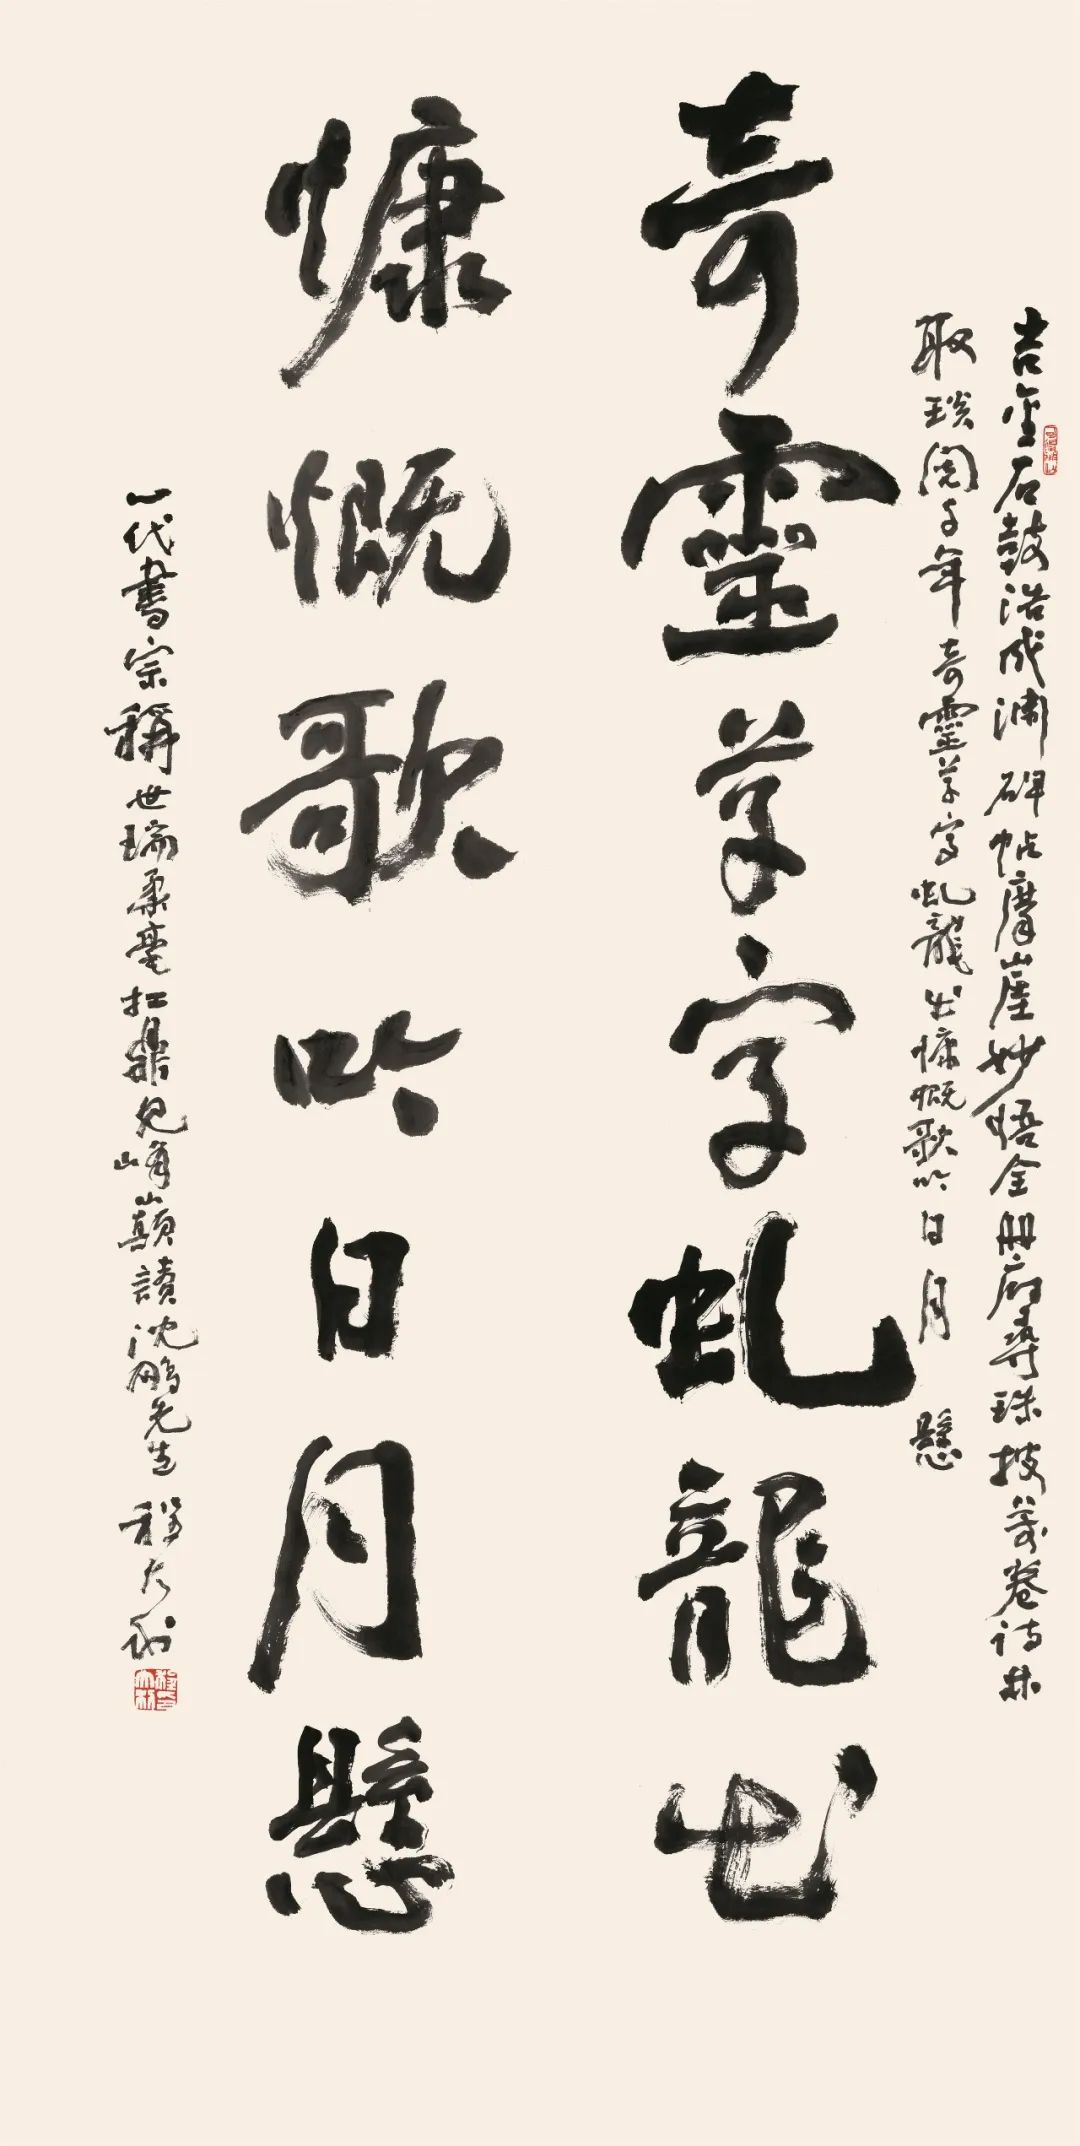 吉金石鼓浩成淵碑帖摩崖妙悟全冊府尋珠披萬卷詩林
取琰閱千年奇靈草字虬龍出慷慨歌吟日月懸
奇靈草字虬龍出
慷慨歌吟日月懸
一代書宗稱世瑞柔毫扛鼎見峰巔讀沈鵬先生程大利